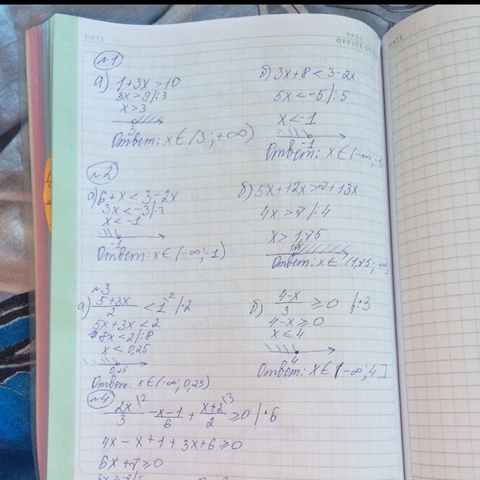 DATE
PAGE
OFFICE
DATE
№1
а) 1+3x>10
3x>9/:3
x>3
3
Ответ: x∈(3;+∞)
б) 3x+8<3-2x
5x<-5/:5
x<-1
-1
Ответ: x∈(-∞;-1)
№2
а) 6+x<3-2x
3x<-3/:3
x<-1
-1
Ответ: x∈(-∞;-1)
б) 5x+12x>7+13x
4x>7/:4
x>1,75
Ответ: x∈(1,75;+∞
№3
а) 5+3x/2 <1\2 /·2
5x+3x<2
8x<2/:8
x<0,25
0,25
Ответ: x∈(-∞;0,25)
б) 4-x/3 ≥0 /·3
4-x≥0
x≤4
4
Ответ: x∈(-∞;4]
№4
2x\2/3 - x-1/6 + x+2\3/2 ≥0/·6
4x-x+1+3x+6≥0
6x+7≥0